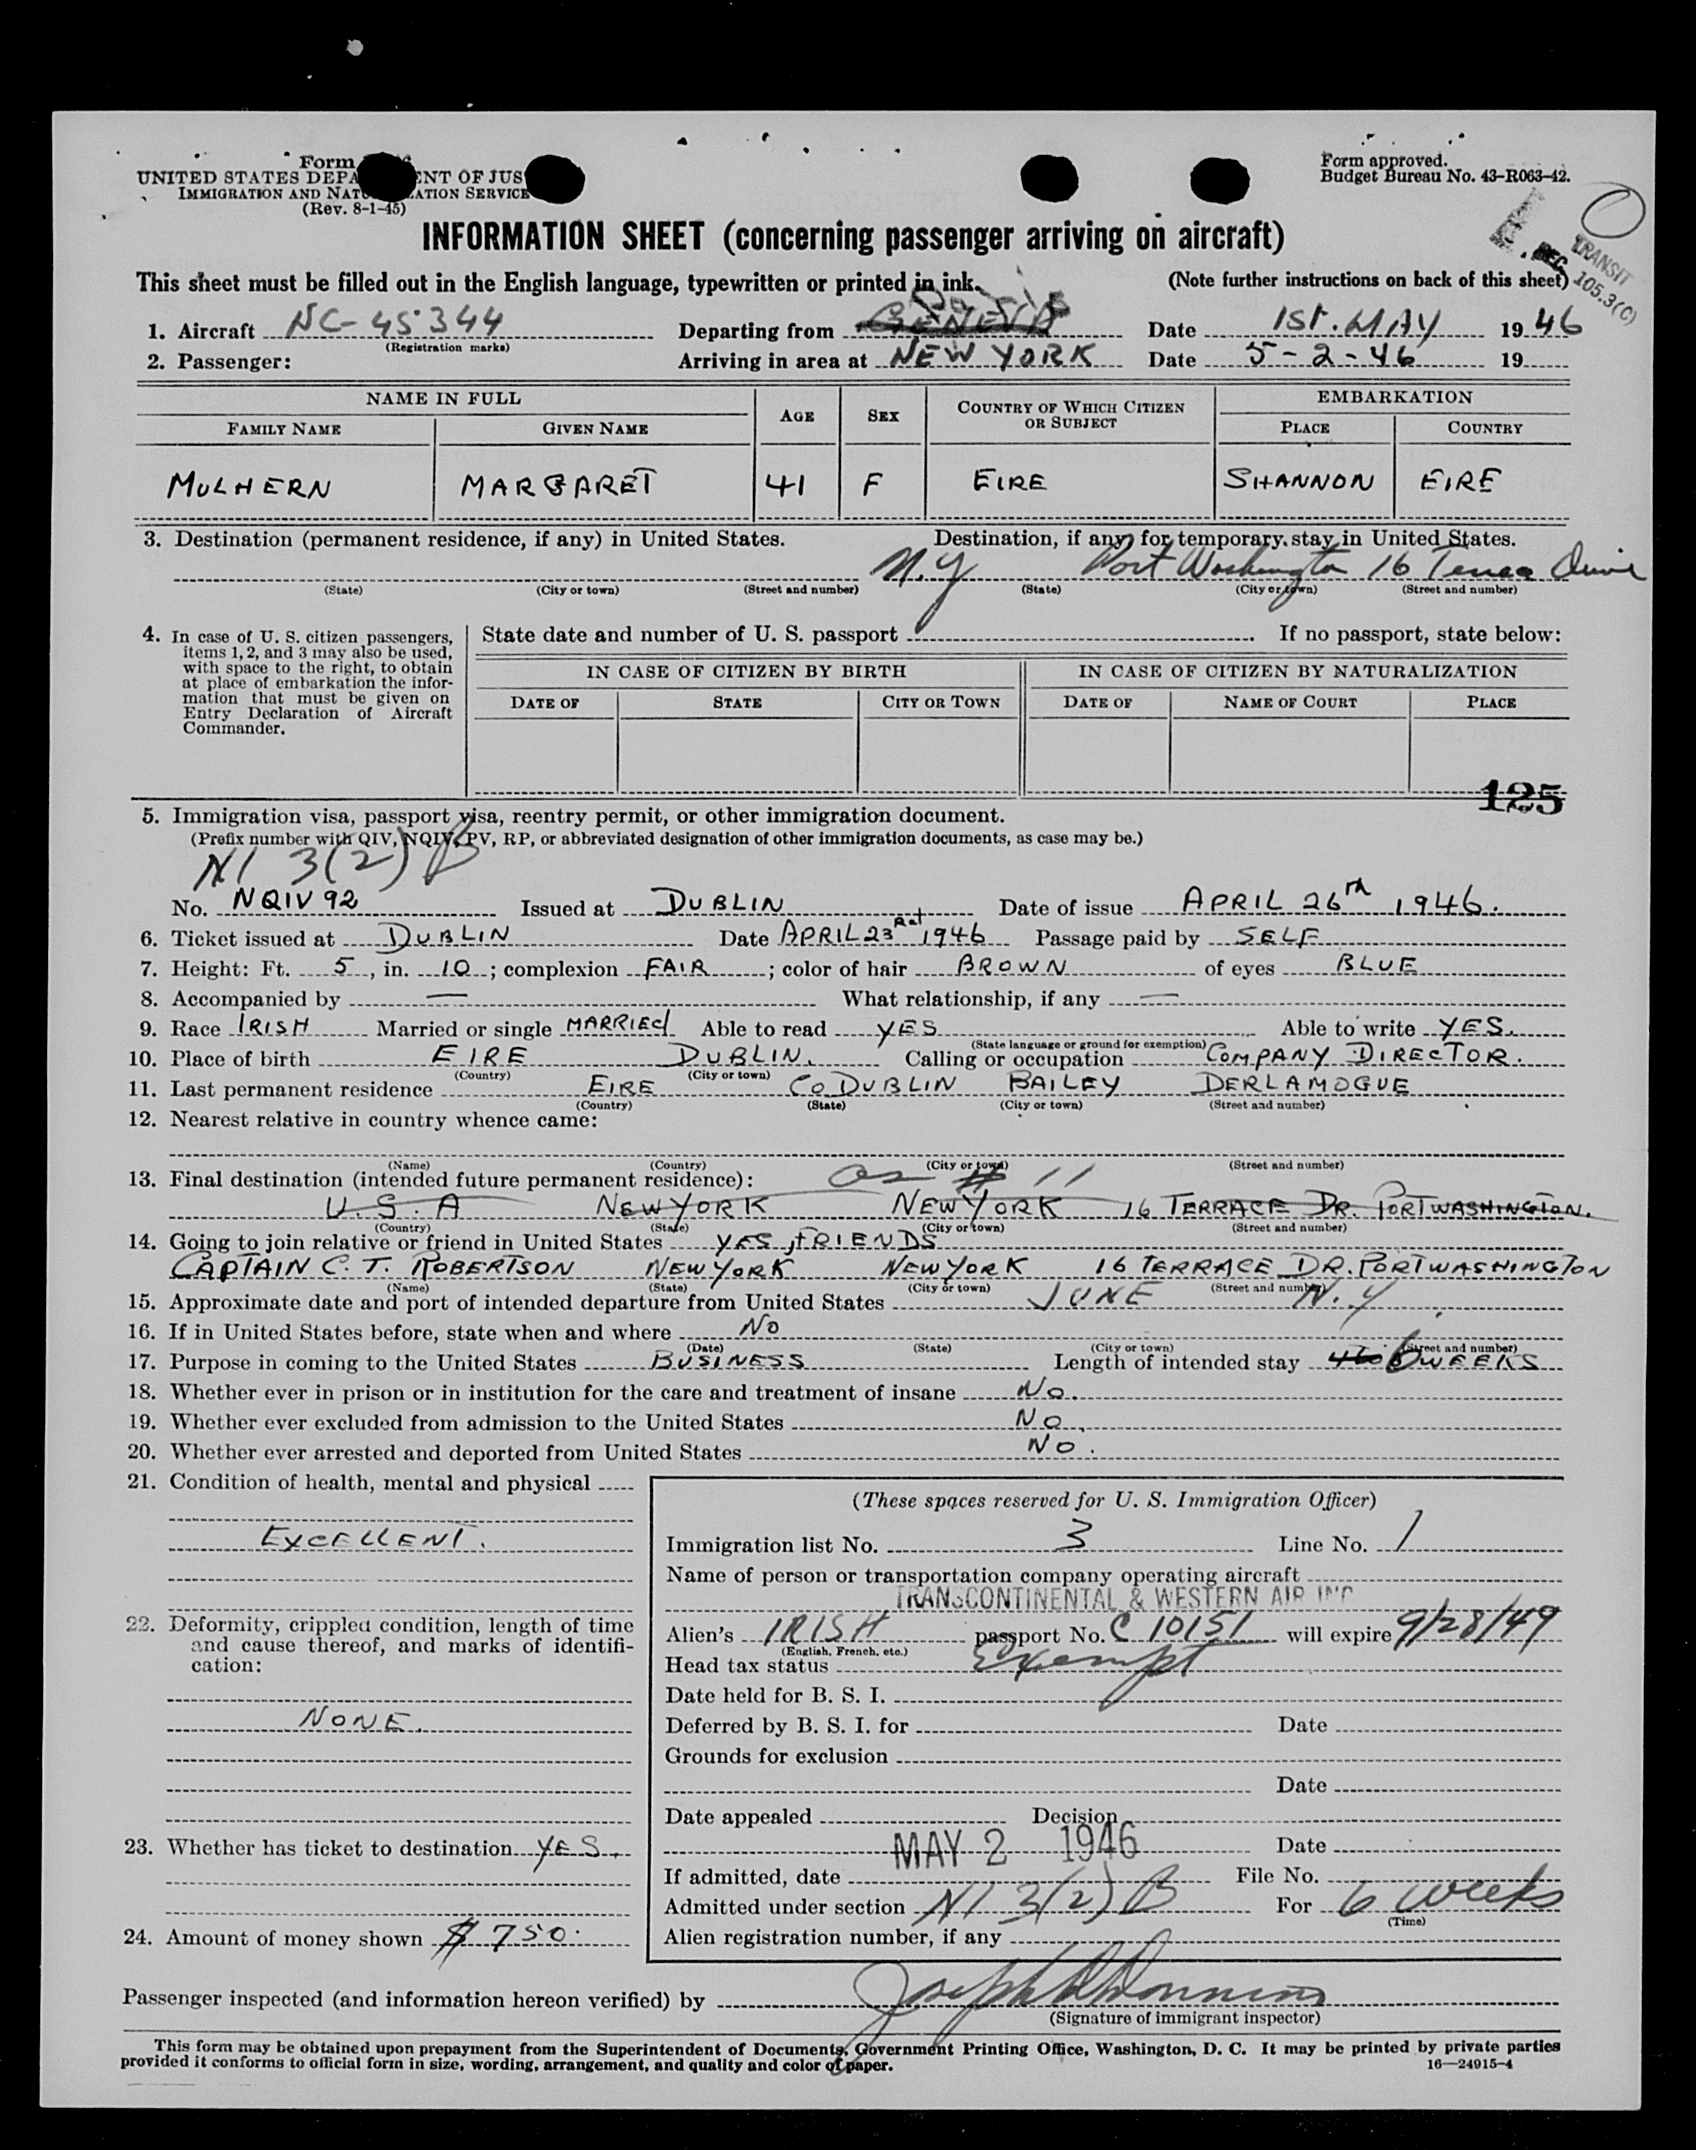 Form
UNITED STATES DEPA ENT OF JUS
IMMIGRATION AND NAT ATION SERVICE
(Rev. 8-1-45)
Form approved.
Budget Bureau No. 43-R063-42.
TRANSIT
REC. 105.3(C)
INFORMATION SHEET (concerning passenger arriving on aircraft)
This sheet must be filled out in the English language, typewritten or printed in ink. (Note further instructions on back of this sheet)
1. Aircraft NC-45344 Departing from Paris GENEVA Date 1ST. MAY 1946
(Registration marks)
2. Passenger: Arriving in area at NEW YORK Date 5-2-46 19
NAME IN FULL AGE SEX COUNTRY OF WHICH CITIZEN OR SUBJECT EMBARKATION
FAMILY NAME GIVEN NAME PLACE COUNTRY
MULHERN MARGARET 41 F EIRE SHANNON EIRE
3. Destination (permanent residence, if any) in United States. Destination, if any, for temporary stay in United States.
N.Y Port Washington 16 Drive
(State) (City or town) (Street and number) (State) (City or town) (Street and number)
4. In case of U. S. citizen passengers, items 1, 2, and 3 may also be used, with space to the right, to obtain at place of embarkation the information that must be given on Entry Declaration of Aircraft Commander.
State date and number of U. S. passport If no passport, state below:
IN CASE OF CITIZEN BY BIRTH IN CASE OF CITIZEN BY NATURALIZATION
DATE OF STATE CITY OR TOWN DATE OF NAME OF COURT PLACE
125
5. Immigration visa, passport visa, reentry permit, or other immigration document.
(Prefix number with QIV, NQIV, PV, RP, or abbreviated designation of other immigration documents, as case may be.)
NI 3(2) B
No. NQIV 92 Issued at DUBLIN Date of issue APRIL 26TH 1946.
6. Ticket issued at DUBLIN Date APRIL 23 1946 Passage paid by SELF
7. Height: Ft. 5, in. 10; complexion FAIR; color of hair BROWN of eyes BLUE
8. Accompanied by — What relationship, if any —
9. Race IRISH Married or single MARRIEd Able to read YES Able to write YES.
(State language or ground for exemption)
10. Place of birth EIRE DUBLIN. Calling or occupation COMPANY DIRECTOR.
(Country) (City or town)
11. Last permanent residence EIRE CO DUBLIN BAILEY DERLAMOGUE
(Country) (State) (City or town) (Street and number)
12. Nearest relative in country whence came:
(Name) (Country) (City or town) (Street and number)
13. Final destination (intended future permanent residence): as # 11
U.S.A NEW YORK NEW YORK 16 TERRACE DR. PORT WASHINGTON.
(Country) (State) (City or town) (Street and number)
14. Going to join relative or friend in United States YES, FRIENDS
CAPTAIN C. T. ROBERTSON NEW YORK NEW YORK 16 TERRACE DR. PORT WASHINGTON
(Name) (State) (City or town) (Street and number)
15. Approximate date and port of intended departure from United States JUNE N.Y.
16. If in United States before, state when and where NO
(Date) (State) (City or town) (Street and number)
17. Purpose in coming to the United States BUSINESS Length of intended stay 6 WEEKS
18. Whether ever in prison or in institution for the care and treatment of insane NO.
19. Whether ever excluded from admission to the United States NO.
20. Whether ever arrested and deported from United States NO.
21. Condition of health, mental and physical
EXCELLENT.
22. Deformity, crippled condition, length of time and cause thereof, and marks of identification:
NONE.
23. Whether has ticket to destination YES.
24. Amount of money shown $ 750.
(These spaces reserved for U. S. Immigration Officer)
Immigration list No. 3 Line No. 1
Name of person or transportation company operating aircraft
TRANSCONTINENTAL & WESTERN AIR INC
Alien's IRISH passport No. C 10151 will expire 9/28/49
(English, French, etc.)
Head tax status Exempt
Date held for B. S. I.
Deferred by B. S. I. for Date
Grounds for exclusion
Date
Date appealed Decision
MAY 2 1946 Date
If admitted, date File No.
Admitted under section NI 3(2) B For 6 weeks
(Time)
Alien registration number, if any
Passenger inspected (and information hereon verified) by
(Signature of immigrant inspector)
This form may be obtained upon prepayment from the Superintendent of Documents, Government Printing Office, Washington, D. C. It may be printed by private parties
provided it conforms to official form in size, wording, arrangement, and quality and color of paper. 16—24915-4